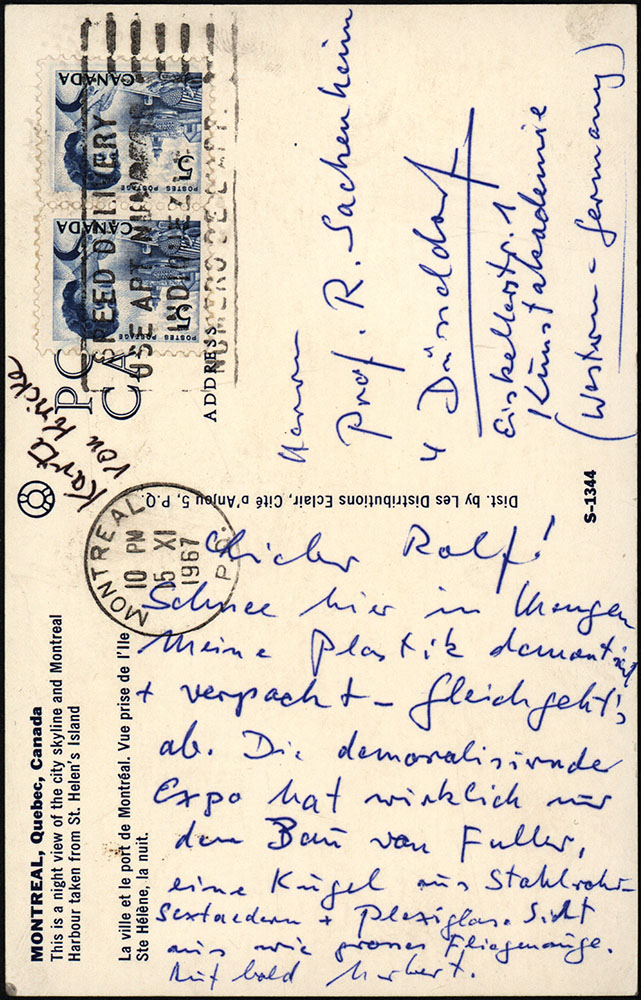 MONTREAL, Quebec, Canada
This is a night view of the city skyline and Montreal
Harbour taken from St. Helen's Island
La ville et le port de Montréal. Vue prise de l'Ile
Ste Hélène, la nuit.
Karte
von Kricke
PO
CA
ADDRESS
CANADA
5
POSTES POSTAGE
CANADA
5
POSTES POSTAGE
SPEED DELIVERY
USE APT NUMBER
INDIQUEZ LE
NUMERO DE L'APP.
MONTREAL
10 PM
15 XI
1967
P.Q.
Dist. by Les Distributions Eclair, Cité d'Anjou 5, P.Q.
S-1344
Herrn
Prof. R. Sackenheim
4 Düsseldorf
Eiskellerstr. 1
Kunstakademie
(Western-Germany)
Lieber Rolf!
Schnee hier in Mengen
Meine Plastik demontiert
+ verpackt – Gleich geht's
ab. Die demoralisirnder
Expo hat wirklich nur
den Bau von Fuller,
eine Kugel aus Stahlrohr-
Sextaedern + Plexiglas. Sieht
aus wie grosses Fliegenauge.
Auf bald Norbert.